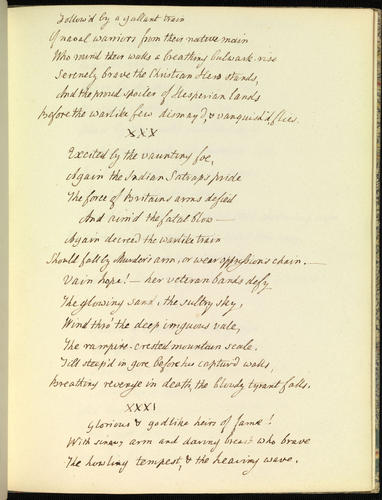 Follow'd by a gallant train
Of naval warriors from their native main
Who mind their walls a breathing bulwark rise
Serenely brave the Christian Hero stands,
And the proud spoiler of Hesperian lands
Before the warlike few dismay'd, & vanquish'd flies.
XXX
Excited by the vaunting foe,
Again the Indian Satraps pride
The force of Britains arms defied
And aim'd the fatal blow —
Again decreed the warlike train
Should fall by Murder's arm, or wear oppressions chain. —
Vain hope! — her veteran bands defy
The glowing sand, the sultry sky,
Wind thro' the deep irriguous vale,
The rampire-crested mountain scale.
Till steep'd in gore before his captur'd walls,
Breathing revenge in death, the bloody tyrant falls.
XXXI
Glorious & godlike heirs of fame!
With sinewy arm and daring breast who brave
The howling tempest, & the heaving wave.